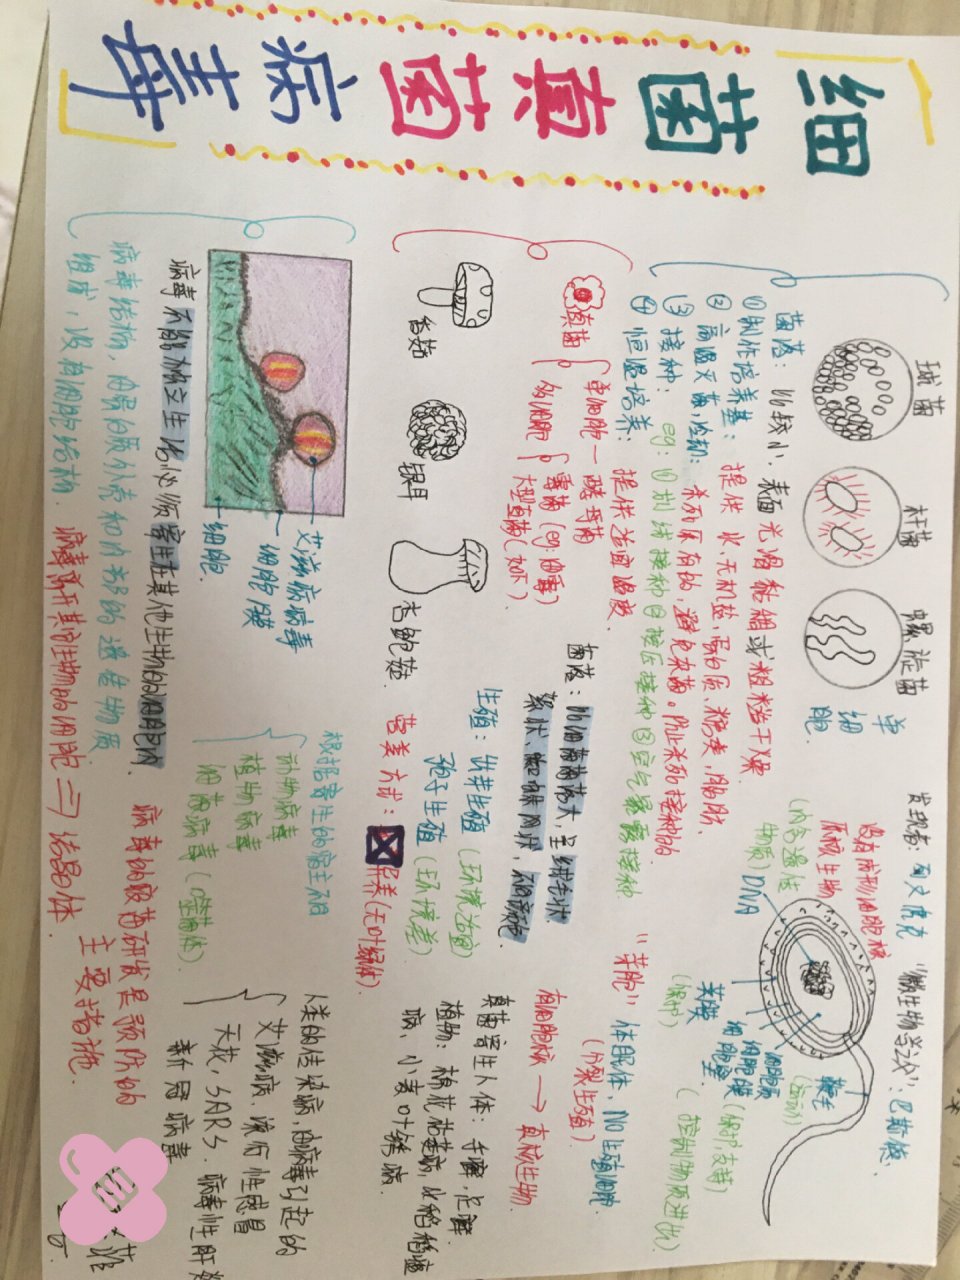 细菌 真菌 病毒
球菌
杆菌
螺旋菌
单细胞
发现者：列文虎克
"微生物学之父"：巴斯德
没有成形细胞核
原核生物
(内含遗传物质) DNA
鞭毛(运动)
细胞质
细胞膜(控制物质进出)
细胞壁(保护,支持)
荚膜(保护)
菌落：比较小，表面光滑黏稠或粗糙干燥
①制作培养基：提供水,无机盐,蛋白质,糖类,脂肪.
②高温灭菌,冷却：杀死原有的,避免杂菌。防止杀死接种的
③接种：eg：①划线接种②按压接种③空气暴露接种
④恒温培养：提供适宜温度.
"芽胞"休眠体，NO生殖细胞.
(分裂生殖)
真菌
单细胞—酵母菌
多细胞
霉菌(eg:曲霉)
大型真菌
香菇
银耳
杏鲍菇
菌落：比细菌菌落大,呈绒毛状
絮状、蜘蛛网状,不同颜色.
生殖：出芽生殖(环境适宜)
孢子生殖(环境差)
营养方式：异养(无叶绿体)
有细胞核→真核生物.
真菌寄生人体：手癣,足癣.
植物：棉花枯萎病,水稻稻瘟
病,小麦叶锈病.
艾滋病病毒
细胞膜
细胞.
病毒不能独立生活必须寄生在其他生物的细胞内.
病毒结构,由蛋白质外壳和内部的遗传物质
组成,没有细胞结构
病毒离开其他生物的细胞⇒结晶体.
根据寄生的宿主不同
动物病毒
植物病毒
细菌病毒(噬菌体).
病毒的疫苗研发是预防的
主要措施.
人类的传染病,由病毒引起的
艾滋病、流行性感冒
天花,SARS,病毒性肝
新冠病毒